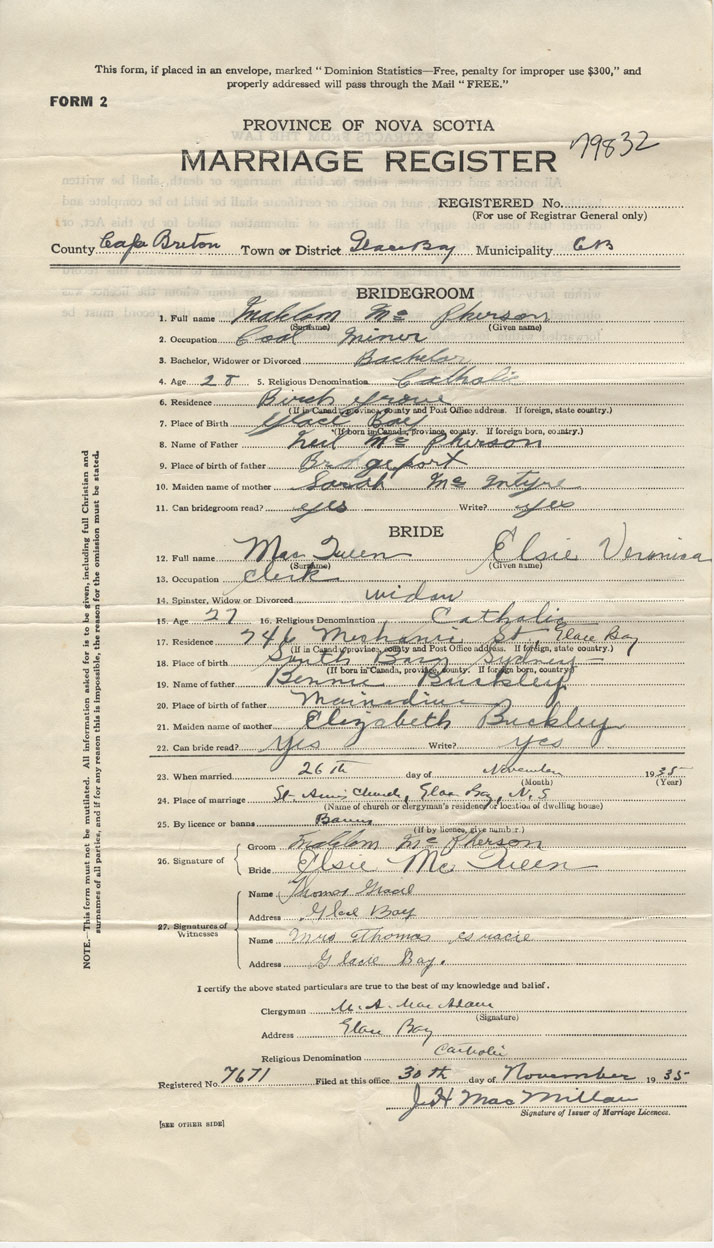 This form, if placed in an envelope, marked " Dominion Statistics—Free, penalty for improper use $300," and
properly addressed will pass through the Mail " FREE."
FORM 2
PROVINCE OF NOVA SCOTIA
79832
MARRIAGE REGISTER
REGISTERED No.
(For use of Registrar General only)
County Cape Breton Town or District Glace Bay Municipality C B
BRIDEGROOM
1. Full name Mc Pherson
(Surname) (Given name)
2. Occupation Coal Miner
3. Bachelor, Widower or Divorced Bachelor
4. Age 28 5. Religious Denomination Catholic
6. Residence Birch Grove
(If in Canada, province, county and Post Office address. If foreign, state country.)
7. Place of Birth Glace Bay
(If born in Canada, province, county. If foreign born, country.)
8. Name of Father Neil Mc Pherson
9. Place of birth of father Bridgeport
10. Maiden name of mother Sarah Mc Intyre
11. Can bridegroom read? yes Write? yes
BRIDE
12. Full name Mac Queen Elsie Veronica
(Surname) (Given name)
13. Occupation Clerk
14. Spinster, Widow or Divorced widow
15. Age 27 16. Religious Denomination Catholic
17. Residence 746 Mechanic St, Glace Bay
(If in Canada, province, county and Post Office address. If foreign, state country.)
18. Place of birth South Bar Sydney
(If born in Canada, province, county. If foreign born, country.)
19. Name of father Bennie Buckley
20. Place of birth of father Mainadieu
21. Maiden name of mother Elizabeth Buckley
22. Can bride read? Yes Write? yes
23. When married 26th day of November 1935
(Month) (Year)
24. Place of marriage St. Anns Church, Glace Bay, N.S
(Name of church or clergyman's residence or location of dwelling house)
25. By licence or banns Banns
(If by licence, give number.)
26. Signature of
Groom Mc Pherson
Bride Elsie Mc Queen
27. Signatures of Witnesses
Name Thomas Gracie
Address Glace Bay
Name Mrs Thomas Gracie
Address Glace Bay.
I certify the above stated particulars are true to the best of my knowledge and belief.
Clergyman M. A. Mac Adam
(Signature)
Address Glace Bay
Religious Denomination Catholic
Registered No. 7671 Filed at this office 30th day of November 1935
J H Mac Millan
Signature of Issuer of Marriage Licences.
[SEE OTHER SIDE]
NOTE.—This form must not be mutilated. All information asked for is to be given, including full Christian and
surnames of all parties, and if for any reason this is impossible, the reason for the omission must be stated.